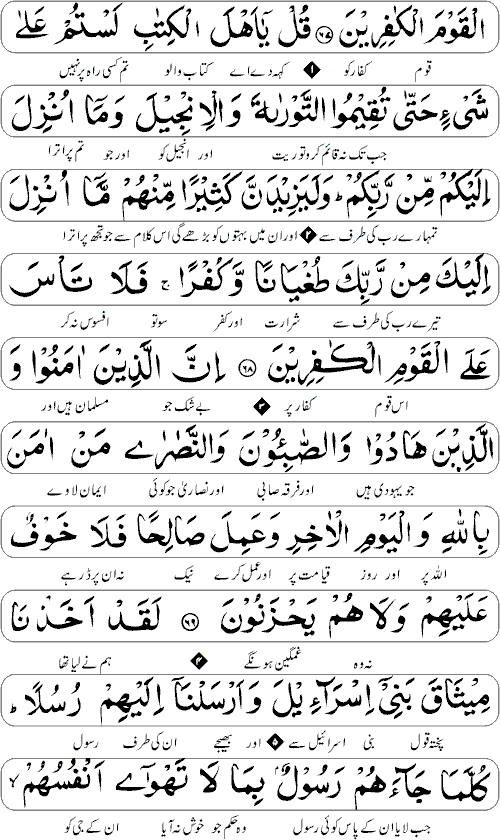 الْقَوْمَ الْكٰفِرِيْنَ ۶۷ قُلْ يٰۤاَهْلَ الْكِتٰبِ لَسْتُمْ عَلٰى
قوم کفار کو ۱ کہہ دے اے کتاب والو تم کسی راہ پر نہیں
شَىْءٍ حَتّٰى تُقِيْمُوا التَّوْرٰىةَ وَالْاِنْجِيْلَ وَمَاۤ اُنْزِلَ
جب تک نہ قائم کرو توریت اور انجیل کو اور جو تم پر اترا
اِلَيْكُمْ مِّنْ رَّبِّكُمْ ؕ وَلَيَزِيْدَنَّ كَثِيْرًا مِّنْهُمْ مَّاۤ اُنْزِلَ
تمہارے رب کی طرف سے ۲ اور ان میں بہتوں کو بڑھے گی اس کلام سے جو تجھ پر اترا
اِلَيْكَ مِنْ رَّبِّكَ طُغْيَانًا وَّكُفْرًا ۚ فَلَا تَاْسَ
تیرے رب کی طرف سے شرارت اور کفر سو تو افسوس نہ کر
عَلَى الْقَوْمِ الْكٰفِرِيْنَ ۶۸ اِنَّ الَّذِيْنَ اٰمَنُوْا وَ
اس قوم کفار پر ۳ بے شک جو مسلمان ہیں اور
الَّذِيْنَ هَادُوْا وَالصّٰبِـُٔوْنَ وَالنَّصٰرٰى مَنْ اٰمَنَ
جو یہودی ہیں اور فرقہ صابی اور نصاریٰ جو کوئی ایمان لاوے
بِاللّٰهِ وَالْيَوْمِ الْاٰخِرِ وَعَمِلَ صَالِحًا فَلَا خَوْفٌ
اللہ پر اور روز قیامت پر اور عمل کرے نیک نہ ان پر ڈر ہے
عَلَيْهِمْ وَلَا هُمْ يَحْزَنُوْنَ ۶۹ لَقَدْ اَخَذْنَا
نہ وہ غمگین ہونگے ۴ ہم نے لیا تھا
مِيْثَاقَ بَنِىْۤ اِسْرَآءِيْلَ وَاَرْسَلْنَاۤ اِلَيْهِمْ رُسُلًا ؕ
پختہ قول بنی اسرائیل سے ۵ اور بھیجے ان کی طرف رسول
كُلَّمَا جَآءَهُمْ رَسُوْلٌۢ بِمَا لَا تَهْوٰٓى اَنْفُسُهُمْ ۙ
جب لایا ان کے پاس کوئی رسول وہ حکم جو خوش نہ آیا ان کے جی کو